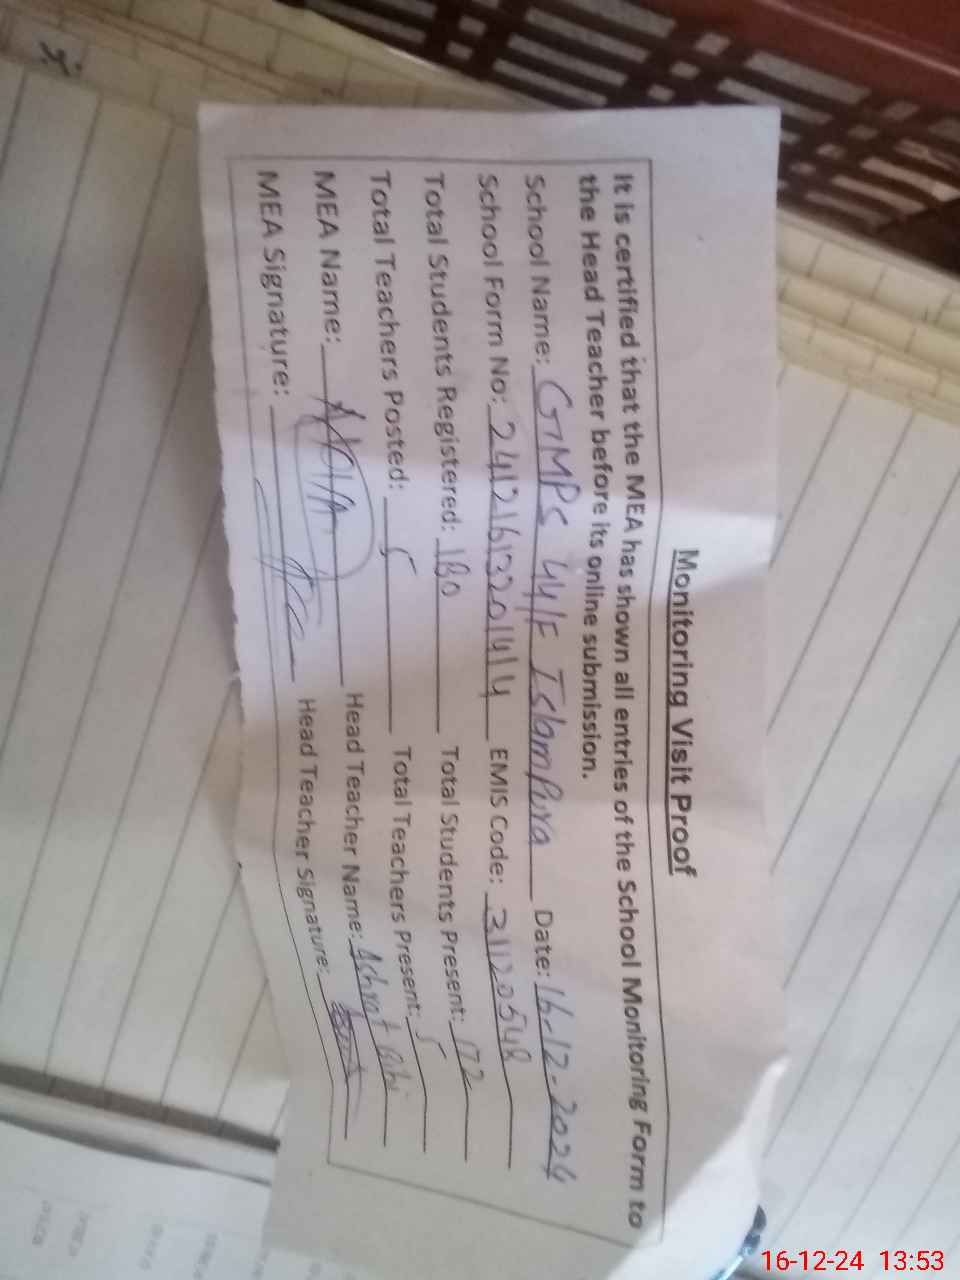 Monitoring Visit Proof
It is certified that the MEA has shown all entries of the School Monitoring Form to
the Head Teacher before its online submission.
School Name: GMPS 44/F IslamPura Date: 16-12-2024
School Form No: 24121613201414 EMIS Code: 31120548
Total Students Registered: 180 Total Students Present: 172
Total Teachers Posted: 5 Total Teachers Present: 5
MEA Name: Head Teacher Name: Bibi
MEA Signature: Head Teacher Signature:
16-12-24 13:53